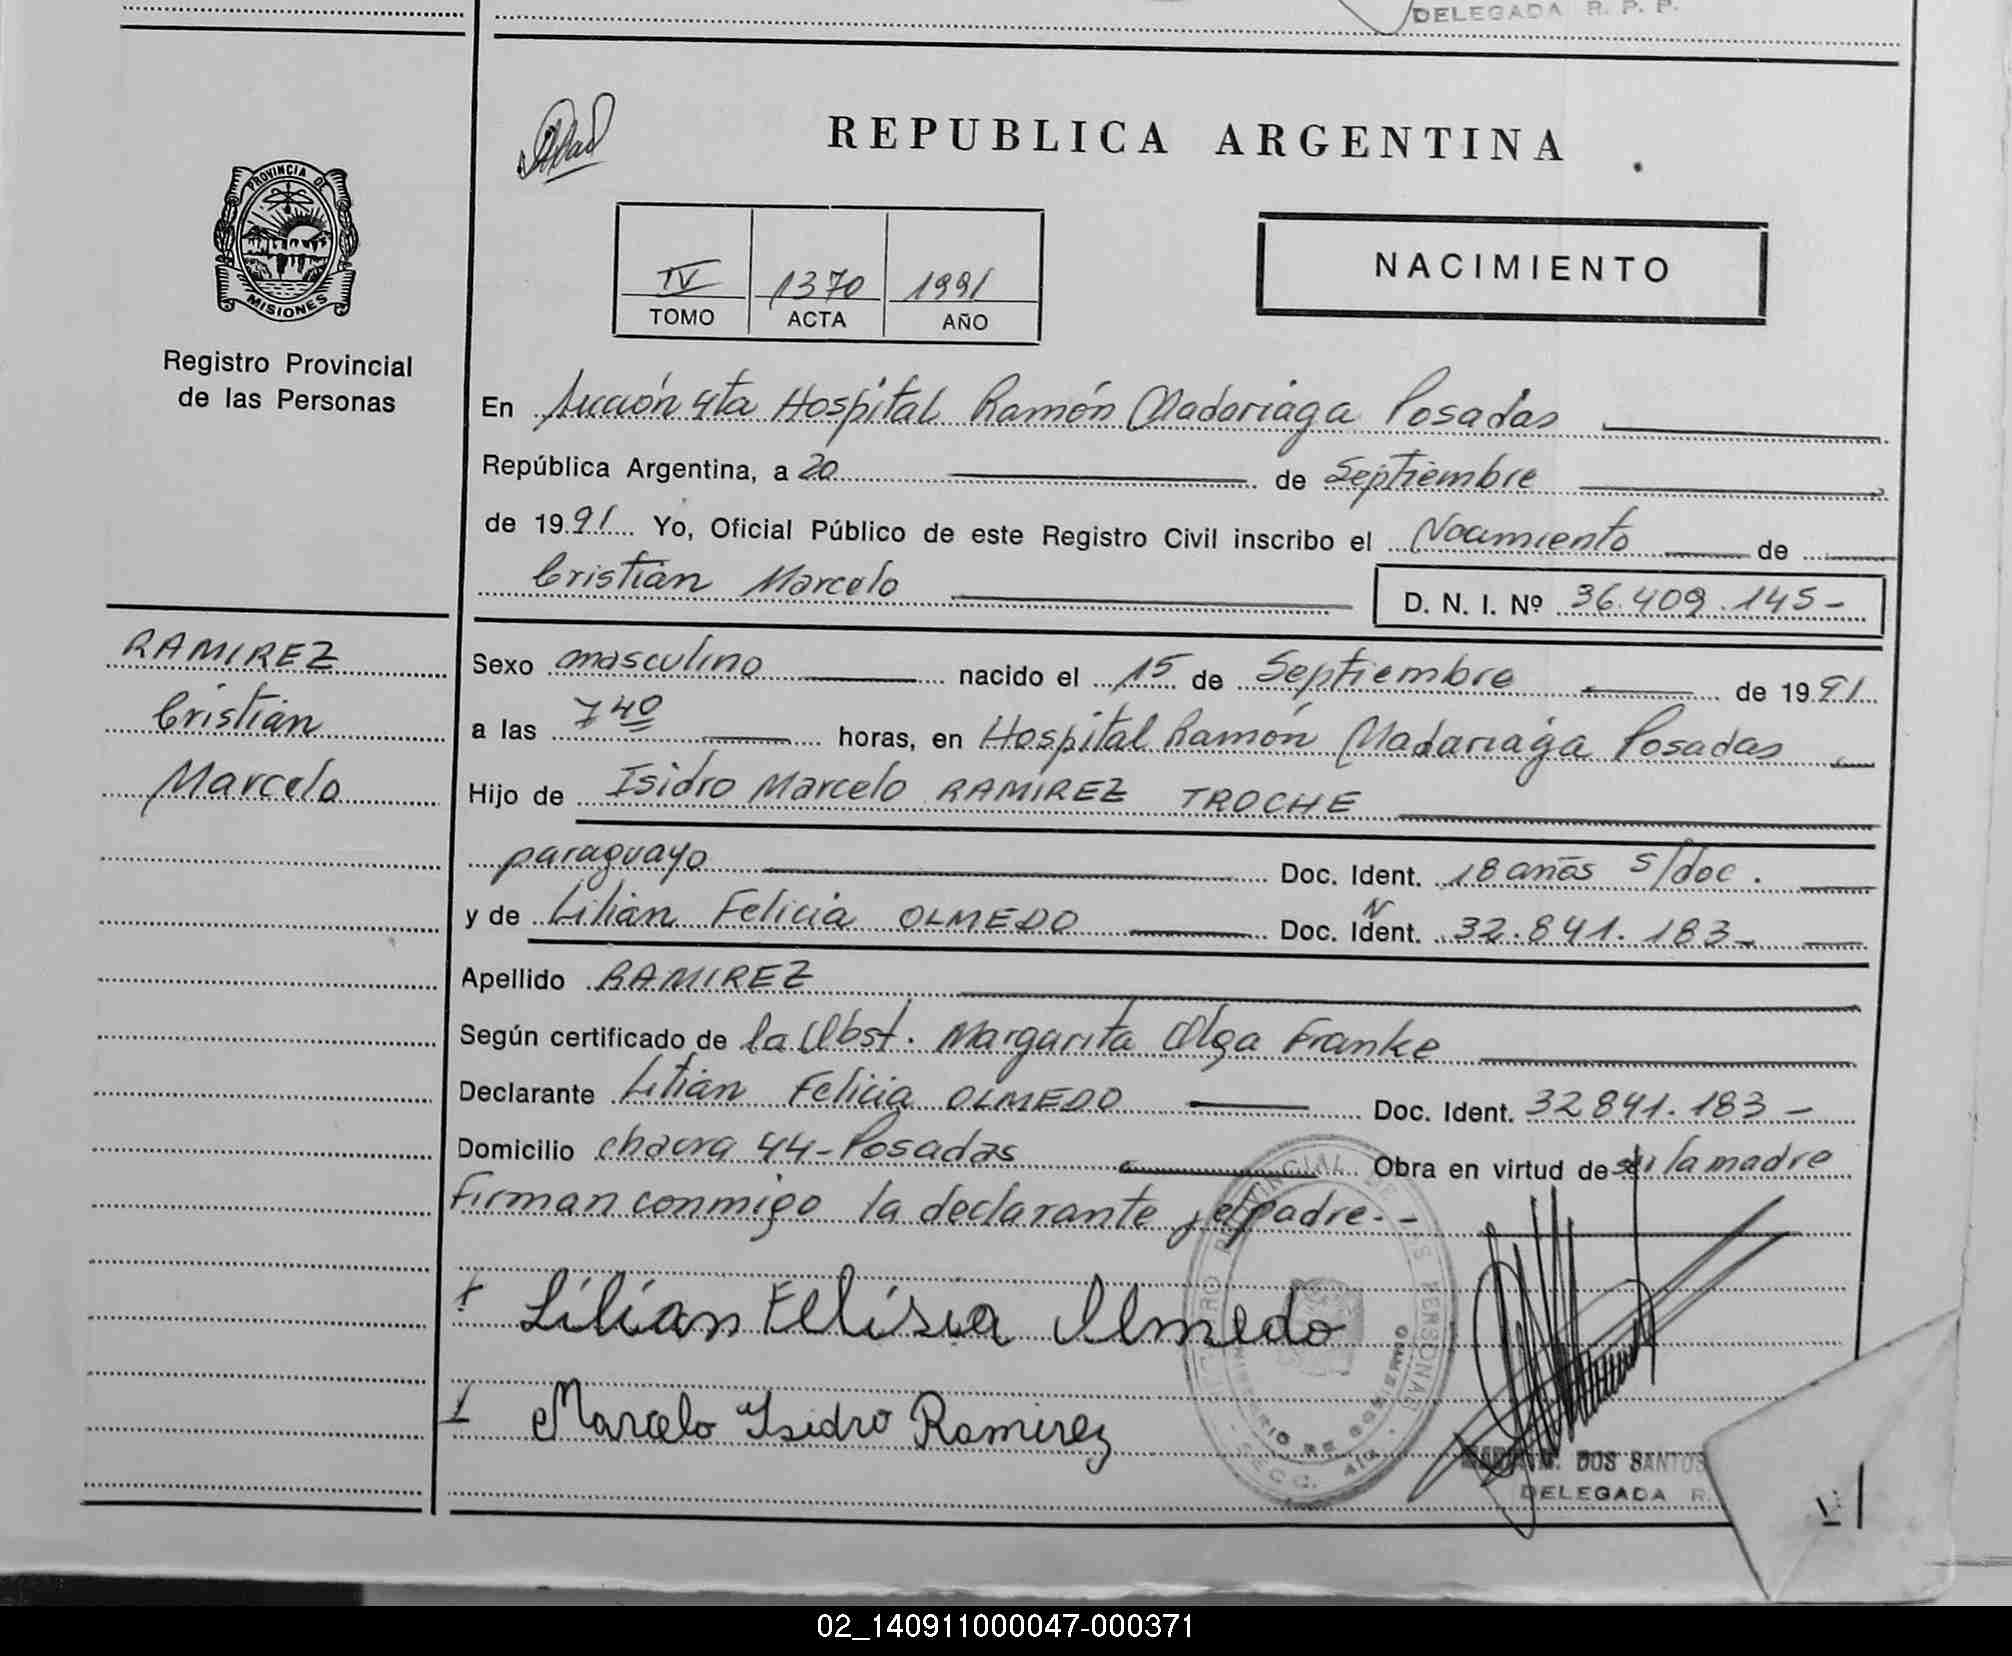 DELEGADA R. P. P.
REPUBLICA ARGENTINA
PROVINCIA DE
MISIONES
Registro Provincial
de las Personas
IV 1370 1991
TOMO ACTA AÑO
NACIMIENTO
En Sección 4ta Hospital Ramón Madariaga Posadas
República Argentina, a 20 de Septiembre
de 1991 Yo, Oficial Público de este Registro Civil inscribo el Nacimiento de
Cristian Marcelo D. N. I. Nº 36.409.145-
RAMIREZ
Cristian
Marcelo
Sexo masculino nacido el 15 de Septiembre de 1991
a las 7 40 horas, en Hospital Ramón Madariaga Posadas
Hijo de Isidro Marcelo RAMIREZ TROCHE
paraguayo Doc. Ident. 18 años s/doc.
y de Lilian Felicia OLMEDO Doc. Ident. N 32.841.183-
Apellido RAMIREZ
Según certificado de la Obst. Margarita Olga Franke
Declarante Lilian Felicia OLMEDO Doc. Ident. 32841.183-
Domicilio chacra 44-Posadas Obra en virtud de ser la madre
Firman conmigo la declarante y el padre.-
Lilian Felisia Olmedo
Marcelo Isidro Ramirez
DOS SANTOS
DELEGADA R.
02_140911000047-000371